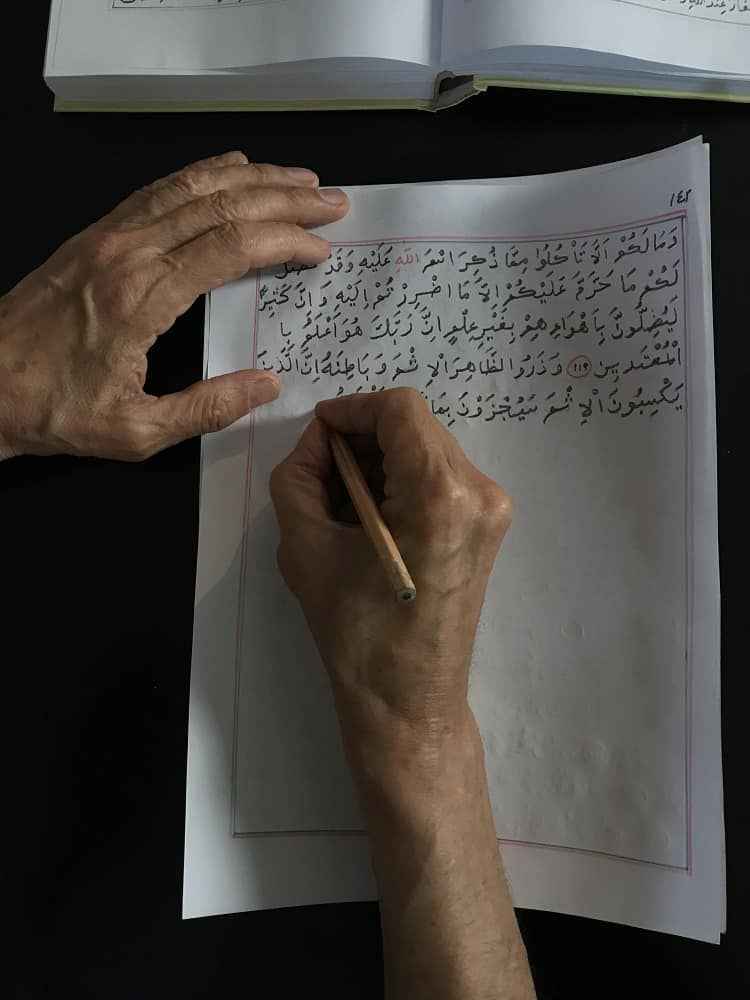 ١٤٢
وَمَا لَكُمْ اَلَّا تَأْكُلُوا مِمَّا ذُكِرَ اسْمُ اللّٰهِ عَلَيْهِ وَقَدْ فَصَّلَ
لَكُمْ مَا حَرَّمَ عَلَيْكُمْ اِلَّا مَا اضْطُرِرْتُمْ اِلَيْهِ وَاِنَّ كَثِيرًا
لَيُضِلُّونَ بِاَهْوَاءِهِمْ بِغَيْرِ عِلْمٍ اِنَّ رَبَّكَ هُوَ اَعْلَمُ بِا
الْمُعْتَدِينَ ١١٩ وَذَرُوا ظَاهِرَ الْاِثْمِ وَبَاطِنَهُ اِنَّ الَّذِينَ
يَكْسِبُونَ الْاِثْمَ سَيُجْزَوْنَ